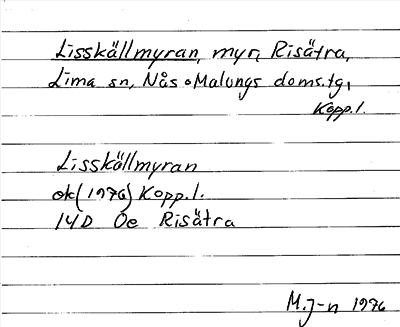 Lisskällmyran, myr, Risätra,
Lima sn, Nås o Malungs doms.tg,
Kopp.l.
Lisskällmyran
ek (1976) Kopp.l.
14D Oe Risätra
M.J-n 1976